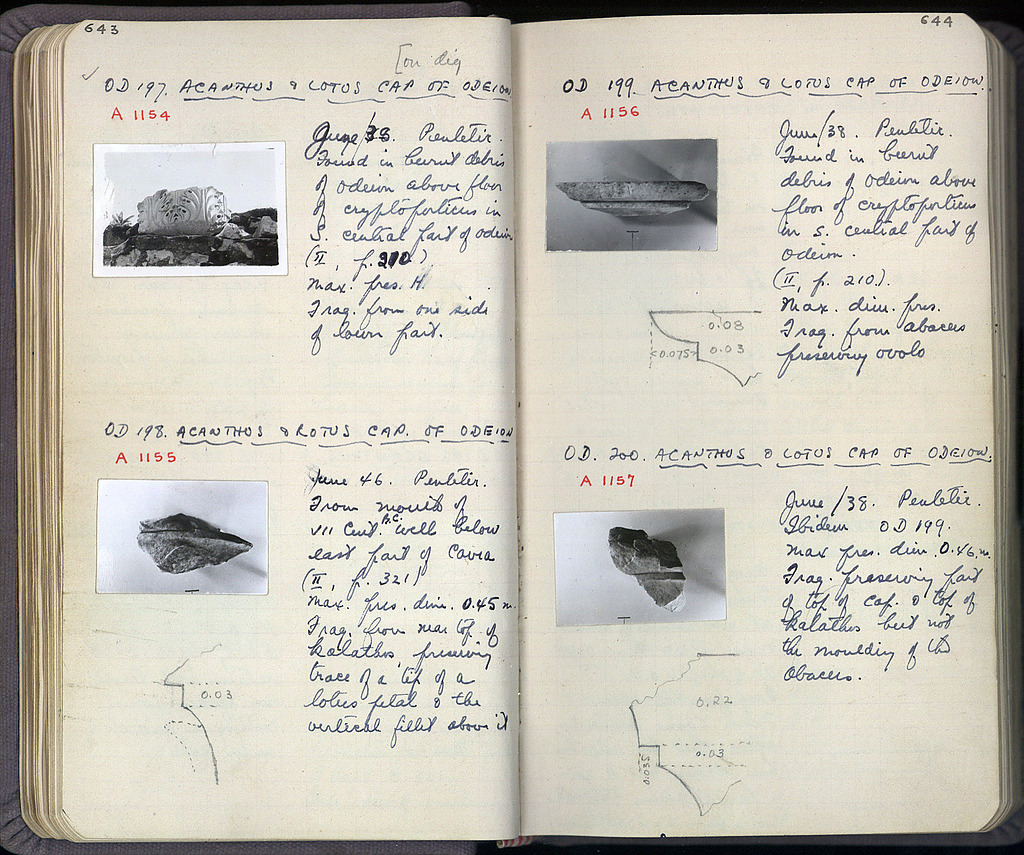 643
[on dig
OD 197. ACANTHUS & LOTUS CAP OF ODEION
A 1154
June/38. Pentelic.
Found in burnt debris
of odeion above floor
of cryptoporticus in
S. central part of odeion
(II, p. 210)
Max. pres. H.
Frag. from one side
of lower part.
OD 198. ACANTHUS & LOTUS CAP. OF ODEION
A 1155
June 46. Pentelic.
From mouth of
VII Cent. B.C. well below
east part of Cavea
(II, p. 321)
Max. pres. dim. 0.45 m.
Frag. from near top of
kalathos, preserving
trace of a tip of a
lotus petal & the
vertical fillet above it
0.03
644
OD 199. ACANTHUS & LOTUS CAP OF ODEION.
A 1156
June/38. Pentelic.
Found in burnt
debris of odeion above
floor of cryptoporticus
in S. central part of
odeion.
(II, p. 210).
Max. dim. pres.
Frag. from abacus
preserving ovolo
0.08
0.03
<0.075>
OD. 200. ACANTHUS & LOTUS CAP OF ODEION.
A 1157
June/38. Pentelic.
Ibidem OD 199.
Max pres. dim. 0.46 m.
Frag. preserving part
of top of cap. & top of
kalathos but not
the moulding of the
abacus.
0.22
0.03
0.035